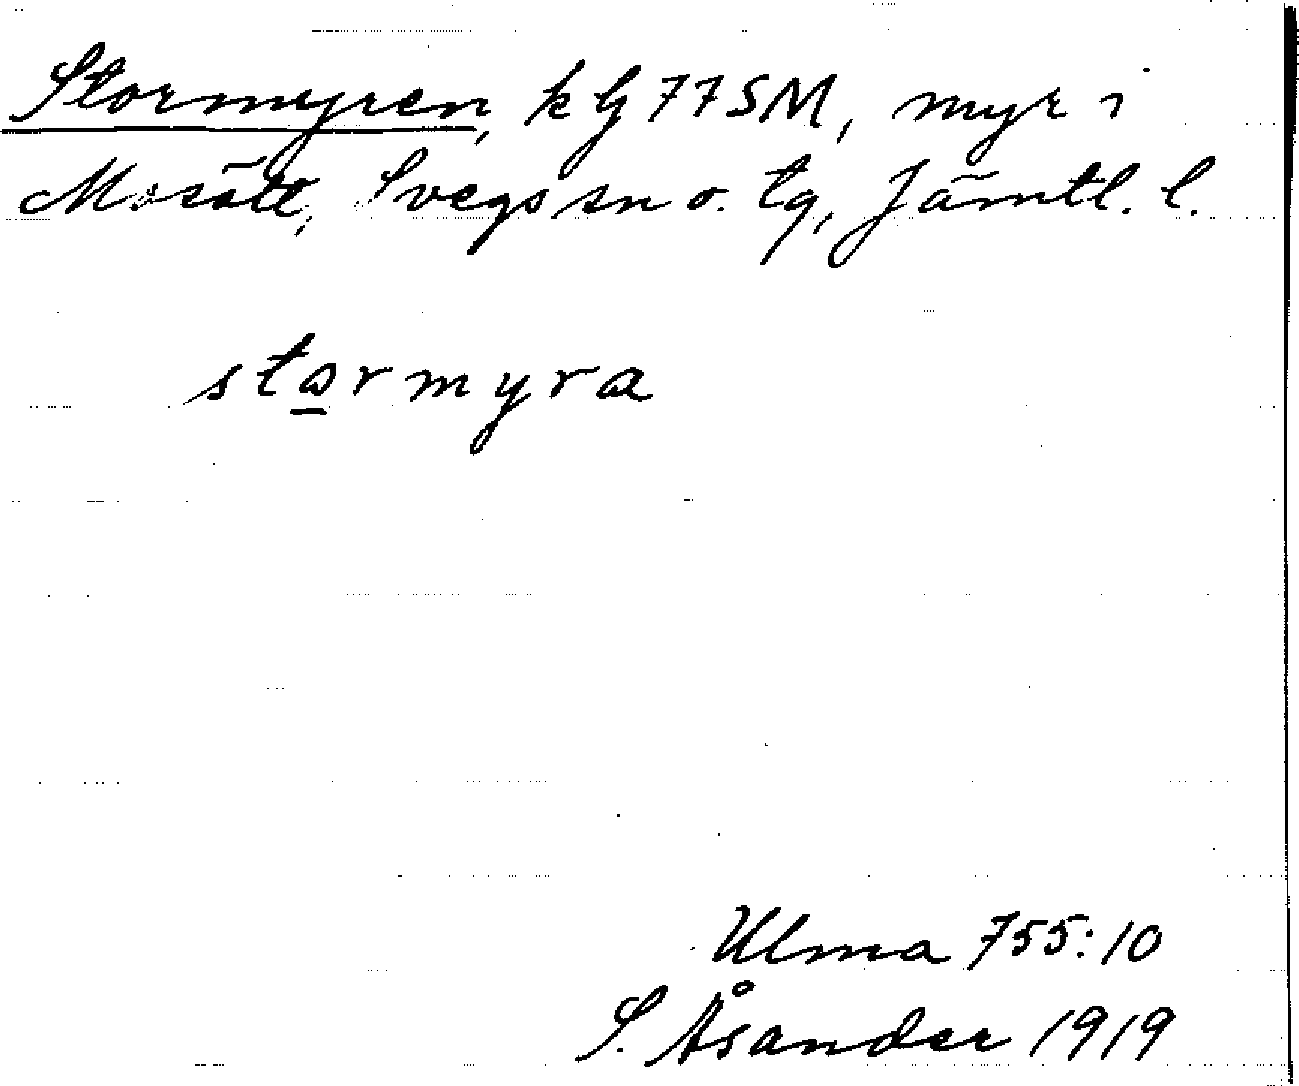 Stormyren, k G 77SM, myr i
Mosätt, Svegs sn o. tg, Jämtl. l.
stormyra
Ulma 755:10
S. Åsander 1919